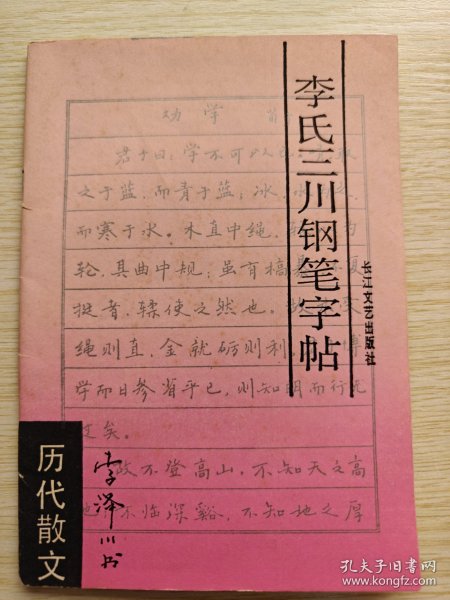 李氏三川钢笔字帖
长江文艺出版社
劝学
君子曰：学不可以
之于蓝，而青于蓝；冰，
而寒于水。木直中绳，
轮，其曲中规；虽有槁
挺者，輮使之然也。
绳则直，金就砺则利，
学而日参省乎已，则知明而行无
过矣。
故不登高山，不知天之高
不临深谿，不知地之厚
历代散文
李泽川书
孔夫子旧书网
www.kongfz.com